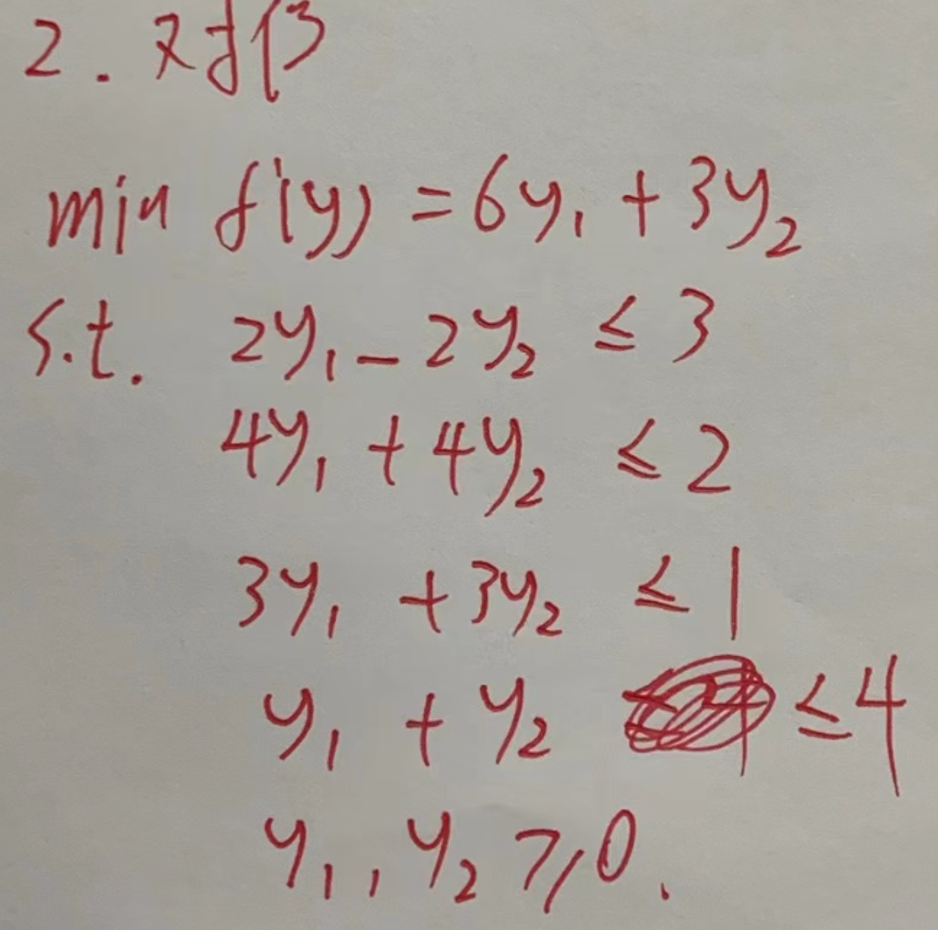 2. 对偶
min f'(y) = 6y₁ + 3y₂
s.t. 2y₁ - 2y₂ ≤ 3
4y₁ + 4y₂ ≤ 2
3y₁ + 3y₂ ≤ 1
y₁ + y₂ ≤ 4
y₁, y₂ ≥ 0.